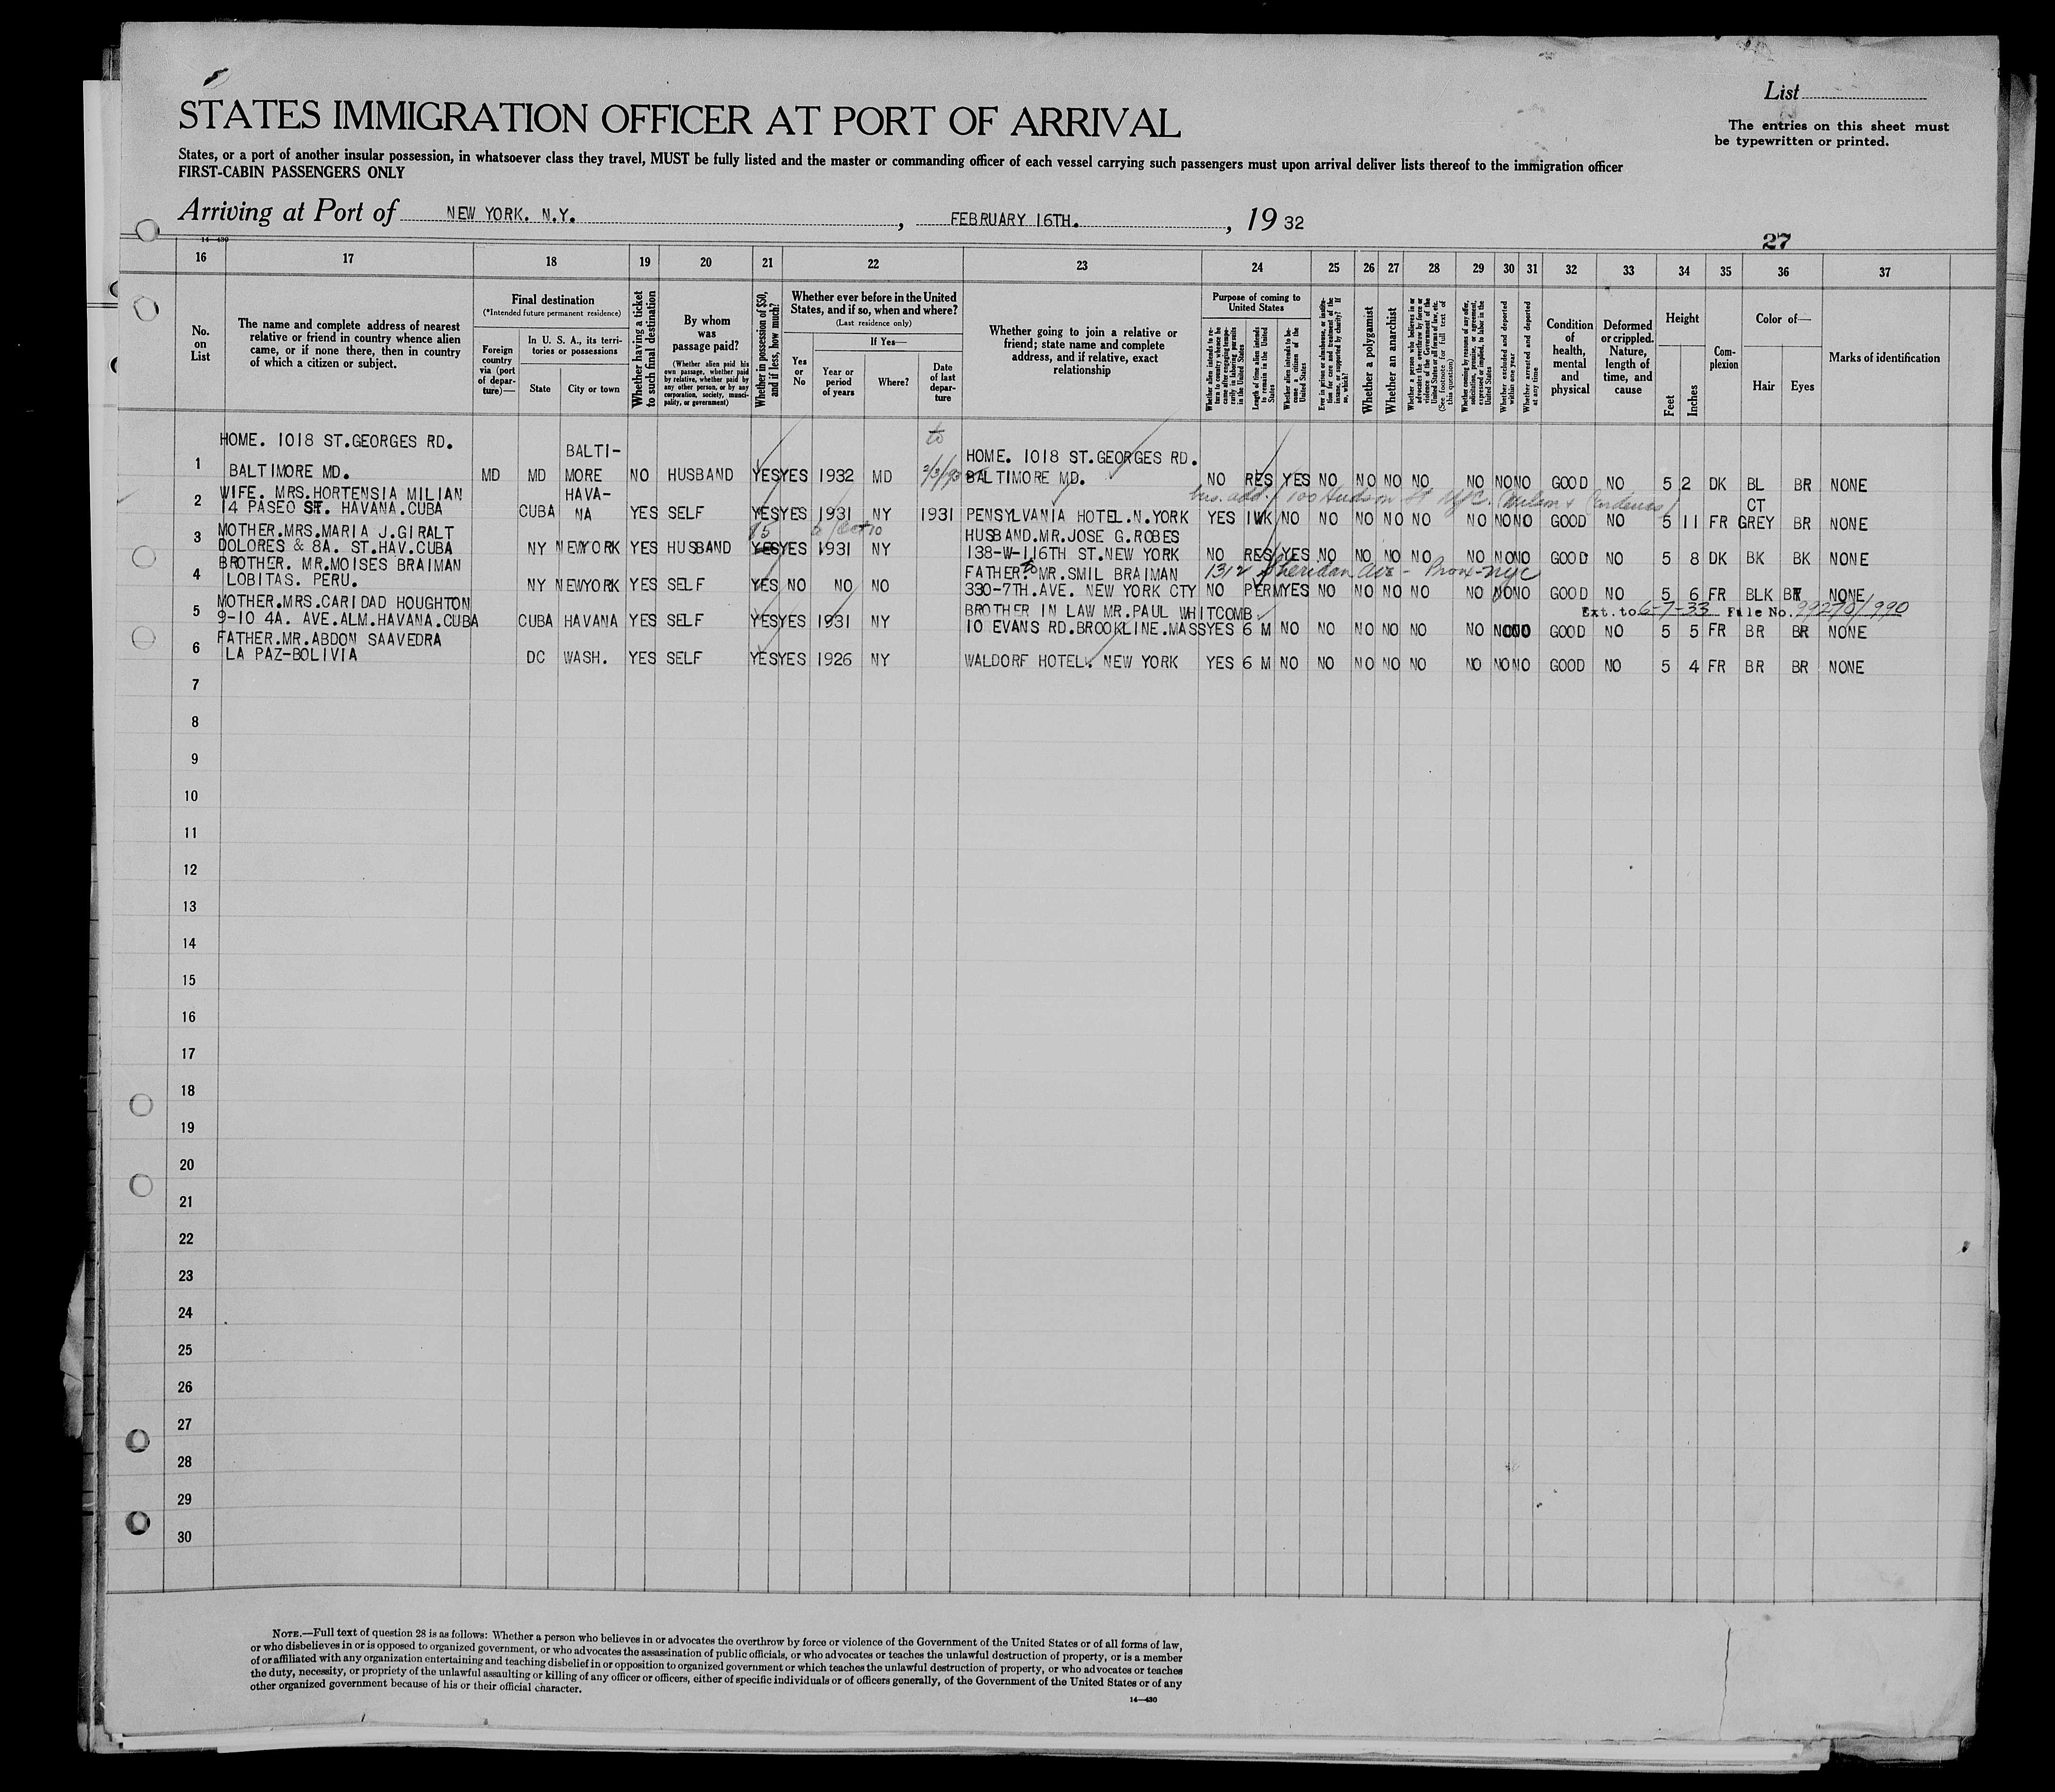 List
STATES IMMIGRATION OFFICER AT PORT OF ARRIVAL
The entries on this sheet must
be typewritten or printed.
States, or a port of another insular possession, in whatsoever class they travel, MUST be fully listed and the master or commanding officer of each vessel carrying such passengers must upon arrival deliver lists thereof to the immigration officer
FIRST-CABIN PASSENGERS ONLY
Arriving at Port of NEW YORK. N.Y. , FEBRUARY 16TH. , 19 32
27
14—430
16 17 18 19 20 21 22 23 24 25 26 27 28 29 30 31 32 33 34 35 36 37
No. on List
The name and complete address of nearest relative or friend in country whence alien came, or if none there, then in country of which a citizen or subject.
Final destination
(*Intended future permanent residence)
Foreign country via (port of departure)—
In U. S. A., its territories or possessions
State
City or town
Whether having a ticket to such final destination
By whom was passage paid?
(Whether alien paid his own passage, whether paid by relative, whether paid by any other person, or by any corporation, society, municipality, or government)
Whether in possession of $50, and if less, how much?
Whether ever before in the United States, and if so, when and where?
(Last residence only)
Yes or No
If Yes—
Year or period of years
Where?
Date of last departure
Whether going to join a relative or friend; state name and complete address, and if relative, exact relationship
Purpose of coming to United States
Whether alien intends to return to country whence he came after engaging temporarily in laboring pursuits in the United States
Length of time alien intends to remain in the United States
Whether alien intends to become a citizen of the United States
Ever in prison or almshouse, or institution for care and treatment of the insane, or supported by charity? If so, which?
Whether a polygamist
Whether an anarchist
Whether a person who believes in or advocates the overthrow by force or violence of the Government of the United States or all forms of law, etc. (See footnote for full text of this question)
Whether coming by reasons of any offer, solicitation, promise, or agreement, expressed or implied, to labor in the United States
Whether excluded and deported within one year
Whether arrested and deported at any time
Condition of health, mental and physical
Deformed or crippled. Nature, length of time, and cause
Height
Feet
Inches
Complexion
Color of—
Hair
Eyes
Marks of identification
HOME. 1018 ST.GEORGES RD. BALTI- to HOME. 1018 ST.GEORGES RD.
1 BALTIMORE MD. MD MD MORE NO HUSBAND YES YES 1932 MD BALTIMORE MD. NO RES YES NO NO NO NO NO NO NO GOOD NO 5 2 DK BL BR NONE
bus. add. 100 Hudson St NYC.
2 WIFE. MRS.HORTENSIA MILIAN HAVA- CT
14 PASEO ST. HAVANA.CUBA CUBA NA YES SELF YES YES 1931 NY 1931 PENSYLVANIA HOTEL.N.YORK YES 1WK NO NO NO NO NO NO NO NO GOOD NO 5 11 FR GREY BR NONE
3 MOTHER.MRS.MARIA J.GIRALT HUSBAND.MR.JOSE G.ROBES
DOLORES & 8A. ST.HAV.CUBA NY NEWYORK YES HUSBAND YES YES 1931 NY 138-W-116TH ST.NEW YORK NO RES YES NO NO NO NO NO NO NO GOOD NO 5 8 DK BK BK NONE
4 BROTHER. MR.MOISES BRAIMAN FATHER. MR.SMIL BRAIMAN 1312 Sheridan Ave - Bronx-NYC
LOBITAS. PERU. NY NEWYORK YES SELF YES NO NO NO 330-7TH.AVE. NEW YORK CTY NO PERM YES NO NO NO NO NO NO NO GOOD NO 5 6 FR BLK BR NONE
Ext. to 6-7-33 File No. 99270/990
5 MOTHER.MRS.CARIDAD HOUGHTON BROTHER IN LAW MR.PAUL WHITCOMB
9-10 4A. AVE.ALM.HAVANA.CUBA CUBA HAVANA YES SELF YES YES 1931 NY 10 EVANS RD.BROOKLINE.MASS YES 6 M NO NO NO NO NO NO NO NO GOOD NO 5 5 FR BR BR NONE
6 FATHER.MR.ABDON SAAVEDRA
LA PAZ-BOLIVIA DC WASH. YES SELF YES YES 1926 NY WALDORF HOTEL. NEW YORK YES 6 M NO NO NO NO NO NO NO NO GOOD NO 5 4 FR BR BR NONE
7
8
9
10
11
12
13
14
15
16
17
18
19
20
21
22
23
24
25
26
27
28
29
30
NOTE.—Full text of question 28 is as follows: Whether a person who believes in or advocates the overthrow by force or violence of the Government of the United States or of all forms of law,
or who disbelieves in or is opposed to organized government, or who advocates the assassination of public officials, or who advocates or teaches the unlawful destruction of property, or is a member
of or affiliated with any organization entertaining and teaching disbelief in or opposition to organized government or which teaches the unlawful destruction of property, or who advocates or teaches
the duty, necessity, or propriety of the unlawful assaulting or killing of any officer or officers, either of specific individuals or of officers generally, of the Government of the United States or of any
other organized government because of his or their official character.
14—430